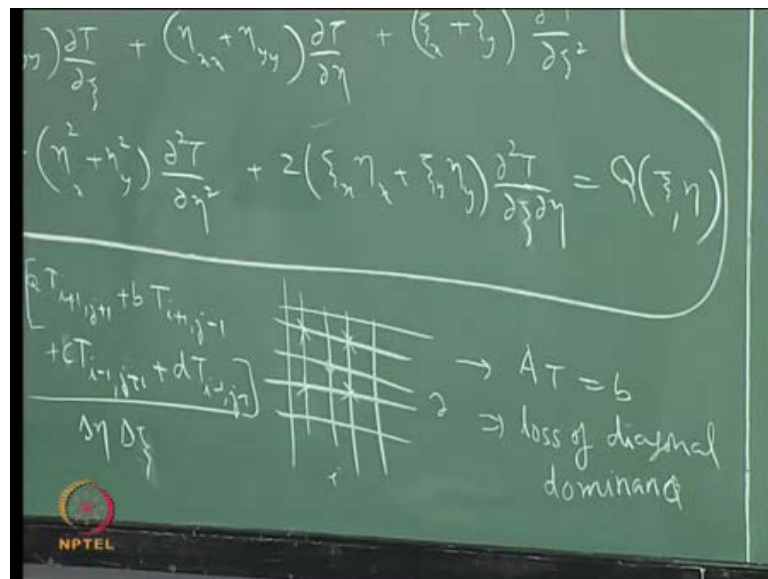 yy) ∂T/∂ξ + (η_xx + η_yy) ∂T/∂η + (ξ_x + ξ_y) ∂T/∂ξ²
(η²_x + η²_y) ∂²T/∂η² + 2(ξ_x η_x + ξ_y η_y) ∂²T/∂ξ∂η = Q(ξ, η)
[a T_{i+1,j+1} + b T_{i+1,j-1}
+ c T_{i-1,j+1} + d T_{i-1,j-1}]
Δη Δξ
→ AT = b
⇒ loss of diagonal
dominance
i
NPTEL